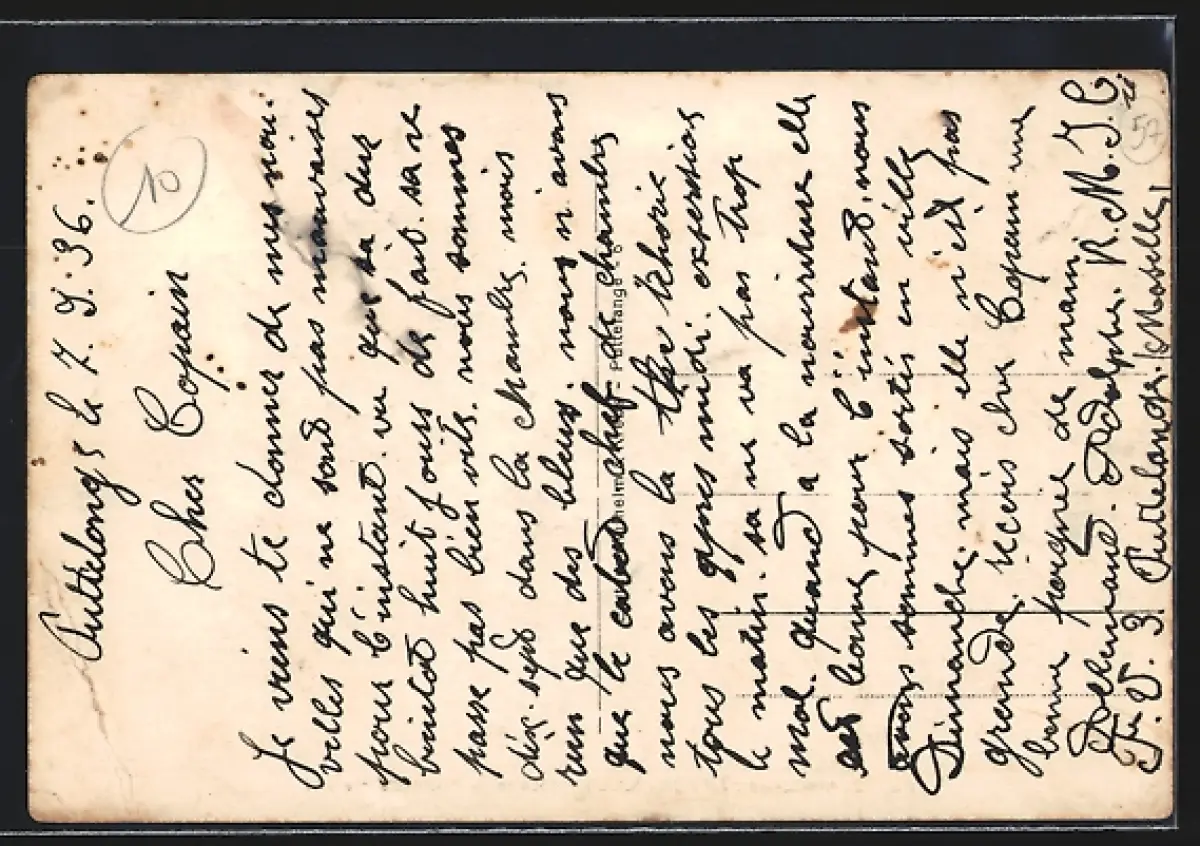 10
57
Puttelange le 7. 9. 36.
Cher Copain
Je viens te donner de mes nou-
velles qui ne sont pas mauvaises
pour l'instant. vu que sa dure
bientot huit jours de fait. sa ne
passe pas bien vite. nous sommes
dix-sept dans la chambre. mais
rien que des bleus. nous n'avons
que le cabot chef de chambre
nous avons la théorie
tous les apres midi. exersion
le matin. sa ne va pas trop
mal. quand a la nourriture elle
est bonne pour l'instant, nous
avons sommes sortis en ville
Dimanche, mais elle n'est pas
grande. recois cher Copain une
bonne poigne de main.
Adolphe. R.M.I.C
3 Puttelange. (Moselle)
Puttelange - 6